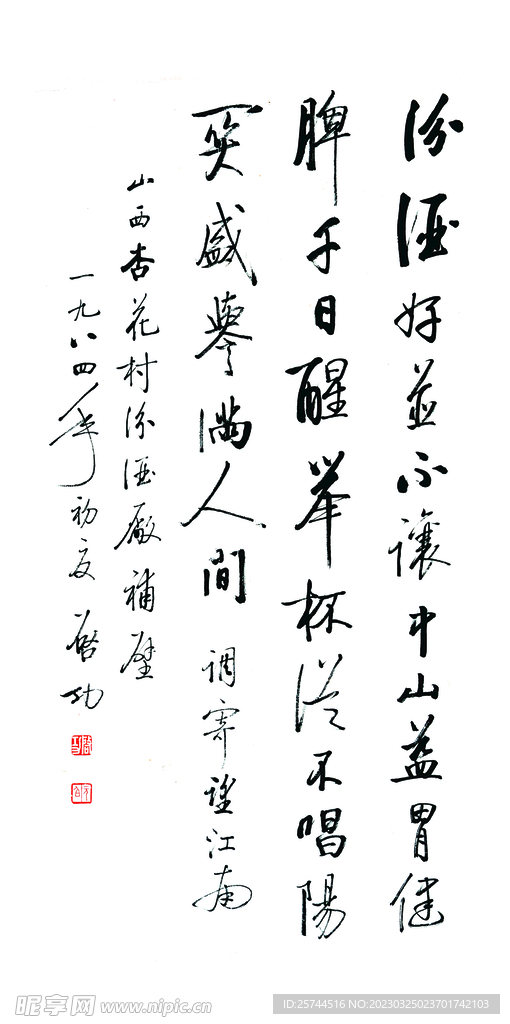 汾酒好並不讓中山益胃健
脾千日醒舉杯從不唱陽
関盛譽滿人間 調寄望江南
山西杏花村汾酒廠補壁
一九八四年初夏 啓功
昵享网 www.nipic.cn
ID:25744516 NO:20230325023701742103